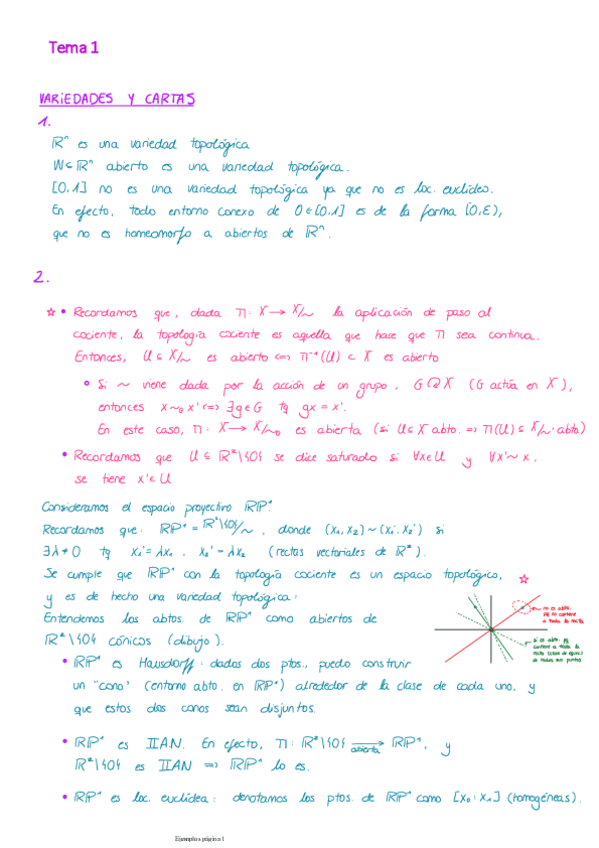 Tema 1
VARIEDADES Y CARTAS
1.
ℝⁿ es una variedad topológica
W⊆ℝⁿ abierto es una variedad topológica.
[0,1] no es una variedad topológica ya que no es loc. euclídeo.
En efecto, todo entorno conexo de 0∈[0,1] es de la forma [0,ε),
que no es homeomorfo a abiertos de ℝⁿ.
2.
☆ • Recordamos que, dada π: X → X/~ la aplicación de paso al
cociente, la topología cociente es aquella que hace que π sea continua.
Entonces, U ⊆ X/~ es abierto ⇔ π⁻¹(U) ⊂ X es abierto
∘ Si ~ viene dada por la acción de un grupo, G ↷ X (G actúa en X),
entonces x ~G x' ⇔ ∃g∈G tq gx = x'.
En este caso, π: X → X/~G es abierta (si U⊆X abto. ⇒ π(U) ⊆ X/~ abto)
• Recordamos que U ⊆ ℝ²\{0} se dice saturado si ∀x∈U y ∀x'~x,
se tiene x'∈U
Consideramos el espacio proyectivo ℝP¹.
Recordamos que: ℝP¹ = ℝ²\{0}/~, donde (x₁,x₂) ~ (x₁',x₂') si
∃λ≠0 tq x₁'=λx₁, x₂'=λx₂ (rectas vectoriales de ℝ²).
Se cumple que ℝP¹ con la topología cociente es un espacio topológico, ☆
y es de hecho una variedad topológica:
Entendemos los abtos. de ℝP¹ como abiertos de
ℝ²\{0} cónicos (dibujo).
no es abto.
a toda la recta
si es abto.
contiene a toda la
de todos sus puntos
• ℝP¹ es Hausdorff: dados dos ptos., puedo construir
un "cono" (entorno abto. en ℝP¹) alrededor de la clase de cada uno, y
que estos dos conos sean disjuntos.
• ℝP¹ es IIAN. En efecto, π: ℝ²\{0} → abierta ℝP¹, y
ℝ²\{0} es IIAN ⇒ ℝP¹ lo es.
• ℝP¹ es loc. euclídea: denotamos los ptos. de ℝP¹ como [x₀:x₁] (homogéneas).
Ejemplos página 1